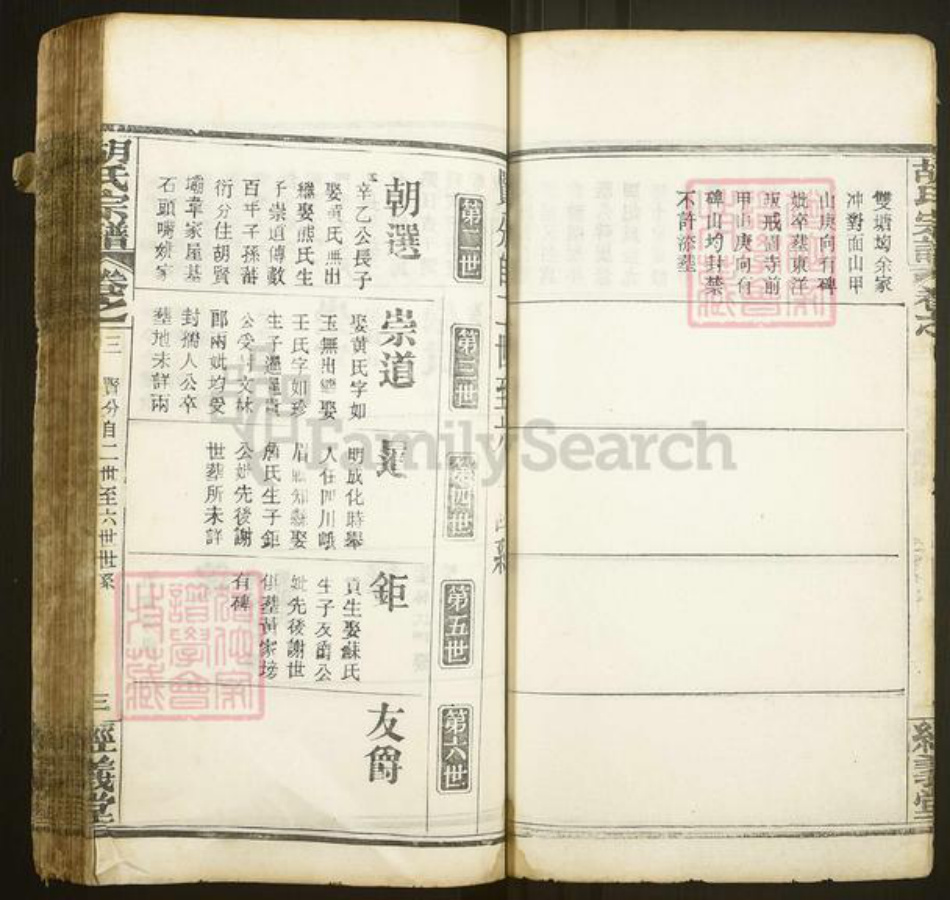 胡氏宗譜
雙塘坳余家
冲對面山甲
山庚向有碑
妣卒塟東洋
寺前
甲山庚向有
碑山均封禁
不許添塟
經義堂
第二世
第三世
第四世
第五世
第六世
朝選
幸乙公長子
娶黄氏無出
繼娶熊氏生
子崇道傳數
百年子孫蕃
衍分住胡賢
壩韋家屋基
石頭嘴姚家
崇道
娶黄氏字如
玉無出繼娶
王氏字如珍
生子暹暹貴
公受封文林
郎兩妣均受
封孺人公卒
塟地未詳兩
暹
明成化時舉
人任四川峨
眉縣知縣娶
詹氏生子鉅
公妣先後謝
世塟所未詳
鉅
貢生娶蘇氏
生子友爵公
妣先後謝世
俱塟黄家塝
有碑
友爵
胡氏宗譜
卷之三
賢分自二世至六世世系
三
經義堂
FamilySearch